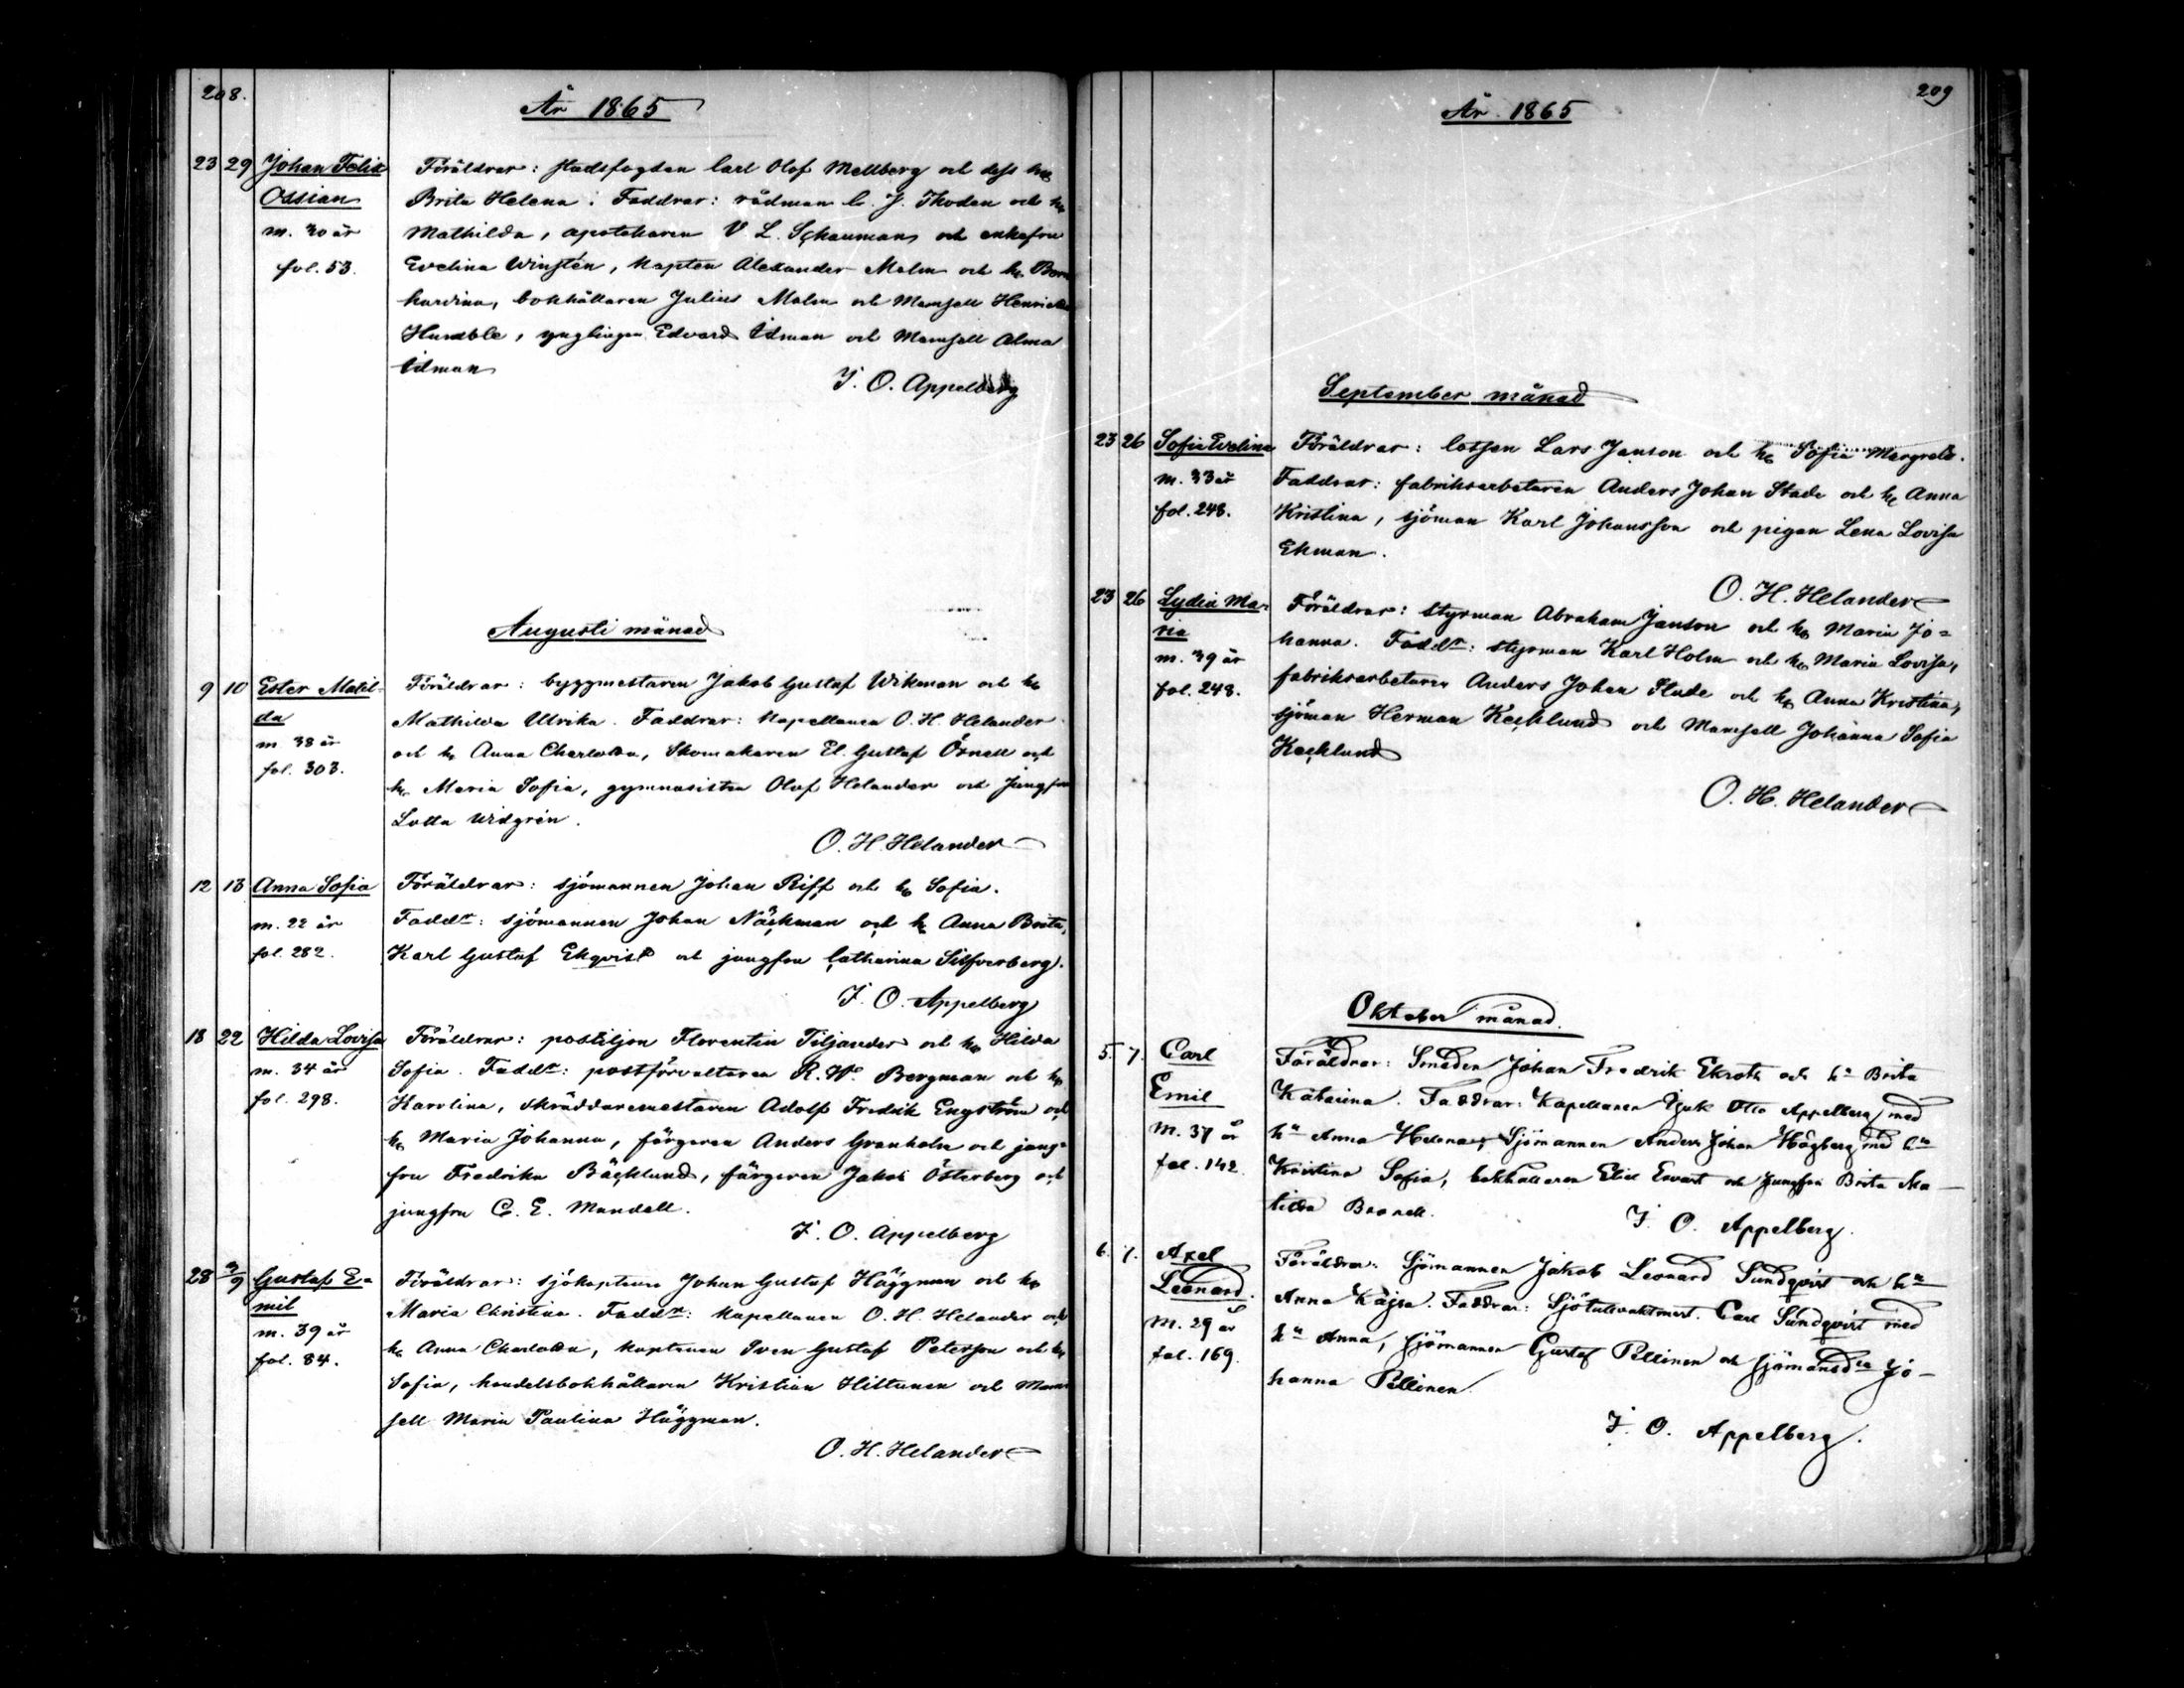 208.
År 1865
23 29 Johan Felix Föräldrar: stadsfogden Carl Olof Mellberg och dess hu
Ossian Brita Helena; Faddrar: rådman C. J. Thoden och hu
m. 30 år Mathilda, apothekaren V. L. Schauman och enkefru
fol. 53. Evelina Winstén, kapten Alexander Malm och hu Bern
hardina, bokhållaren Julius Malm och Mamsell Henrietta
Humble, ynglingen Edvard Idman och Mamsell Alma
Idman
J. O. Appelberg
Augusti månad
9 10 Ester Matil- Föräldrar: byggmestaren Jakob Gustaf Wikman och hu
da Mathilda Ulrika. Faddrar: Kapellanen O. H. Helander
m. 38 år och hu Anna Charlotta, Skomakaren El. Gustaf Örnell och
fol. 303. hu Maria Sofia, gymnasisten Olof Helander och Jungfru
Lotta Widgrén.
O. H. Helander
12 13 Anna Sofia Föräldrar: sjömannen Johan Riff och hu Sofia.
m. 22 år Faddr: sjömannen Johan Näckman och hu Anna Brita,
fol. 282. Karl Gustaf Ekqvist och jungfru Catharina Silfverberg.
J. O. Appelberg
18 22 Hilda Lovisa Föräldrar: postiljon Florentin Tiljander och hu Hilda
m. 34 år Sofia. Faddr: postförvaltaren R. W. Bergman och hu
fol. 298. Karolina, skräddaremestaren Adolf Fredrik Engström och
hu Maria Johanna, färgeren Anders Granholm och jung-
fru Fredrika Bäcklund, färgeren Jakob Österberg och
jungfru C. E. Mandell.
J. O. Appelberg
28 3/9 Gustaf E- Föräldrar: sjökaptenen Johan Gustaf Häggman och hu
mil Maria Christina. Faddr: Kapellanen O. H. Helander och
m. 39 år hu Anna Charlotta, kaptenen Sven Gustaf Peterson och hu
fol. 84. Sofia, handelsbokhållaren Kristian Hiltunen och Mam
sell Maria Paulina Häggman.
O. H. Helander
209
År 1865
September månad
23 26 Sofia Evelina Föräldrar: lotsen Lars Janson och hu Sofia Margreta.
m. 33 år Faddrar: fabriksarbetaren Anders Johan Stade och hu Anna
fol. 248. Kristina, sjöman Karl Johansson och pigan Lena Lovisa
Ekman.
O. H. Helander
23 26 Lydia Ma- Föräldrar: styrman Abraham Janson och hu Maria Jo-
ria hanna. Faddr: styrman Karl Holm och hu Maria Lovisa,
m. 39 år fabriksarbetaren Anders Johan Stade och hu Anna Kristina,
fol. 248. sjöman Herman Kecklund och Mamsell Johanna Sofia
Kecklund
O. H. Helander
Oktober månad.
5. 7. Carl Föräldrar: Smeden Johan Fredrik Ekroth och hu Brita
Emil Katarina. Faddrar: Kapellanen Otto Appelberg med
m. 37 år hu Anna Helena, Sjömannen Anders Johan Högberg med hu
fol. 142. Kristina Sofia, bokhållaren Elid och Jungfru Brita Ma-
tilda
J. O. Appelberg.
6. 7. Axel Föräldrar: Sjömannen Jakob Leonard Sundqvist och hu
Leonard. Anna Kajsa. Faddrar: Sjötullvaktmest. Carl Sundqvist med
m. 29 år hu Anna, sjömannen Gustaf Pellinen och sjömansd:r Jo-
fol. 169. hanna Pellinen.
J. O. Appelberg.